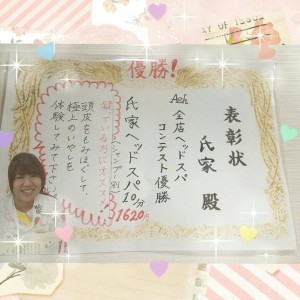 AY OF ISSU
優勝!
表彰状
氏家 殿
Ash
全店ヘッドスパ
コンテスト優勝
氏家ヘッドスパ10分
(シャンプー別)
1620円
疲っている方にオススメ!
頭皮をもみほぐして、
極上のいやしを
体験してみて下さい